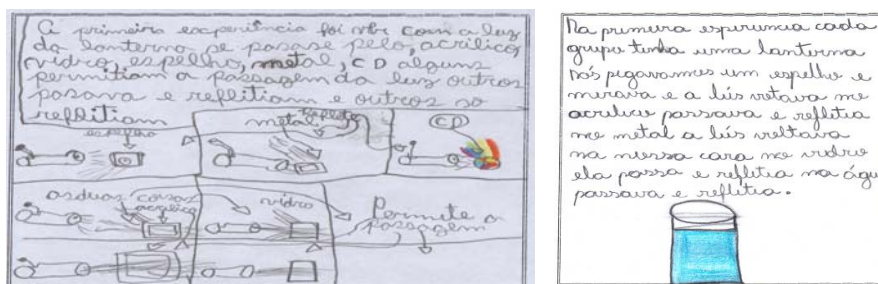 A primeira experiência foi ver com a luz
da lanterna se pasase pelo, acrílico,
vidro, espelho, metal, CD alguns
permitiam a passagem da luz outros
pasava e reflitiam e outros só
reflitiam
espelho
metal
reflete
CD
as duas coisas
acrílico
vidro
Permite a
passagem
Na primeira esperiencia cada
grupo tinha uma lanterna
nós pegavamos um espelho e
mirava e a lús voltava no
acrilico passava e reflitia
no metal a lús voltava
na nossa cara no vidro
ela passa e reflitia na água
passava e reflitia.